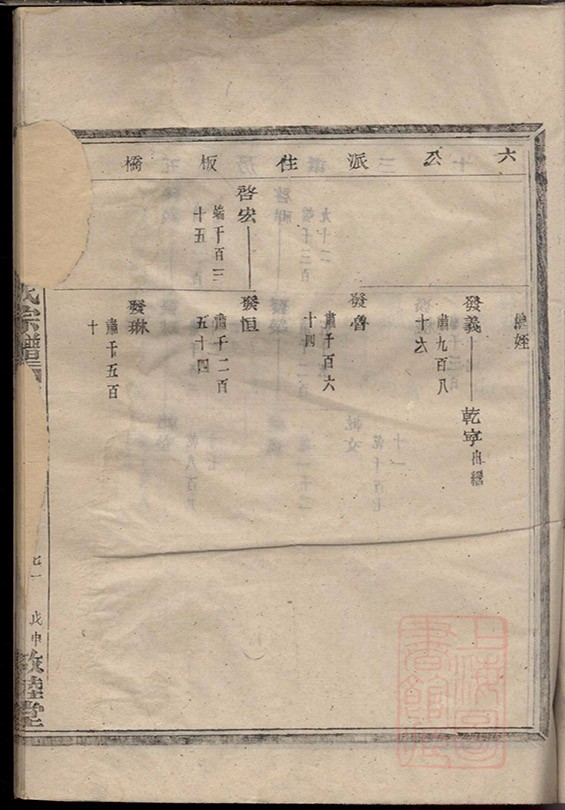 六公派住板橋
發義
肅九百八
十六
乾寧
啓宏
端千百三
十五
發魯
肅千百六
十四
發恒
肅千二百
五十四
發琳
肅千五百
十
氏宗譜
戊申
敦睦堂
上海圖
書館藏